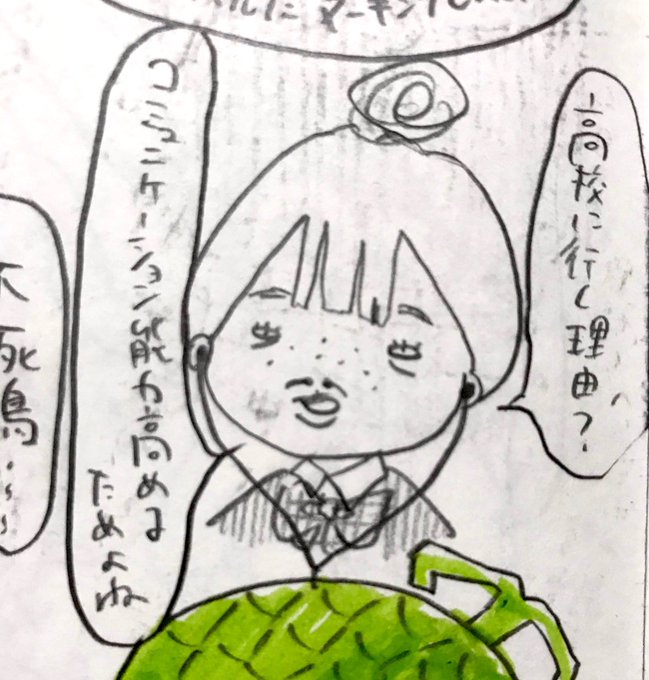 マーキング
高校に行く理由？
コミュニケーション能力高める
ためよね
不死鳥